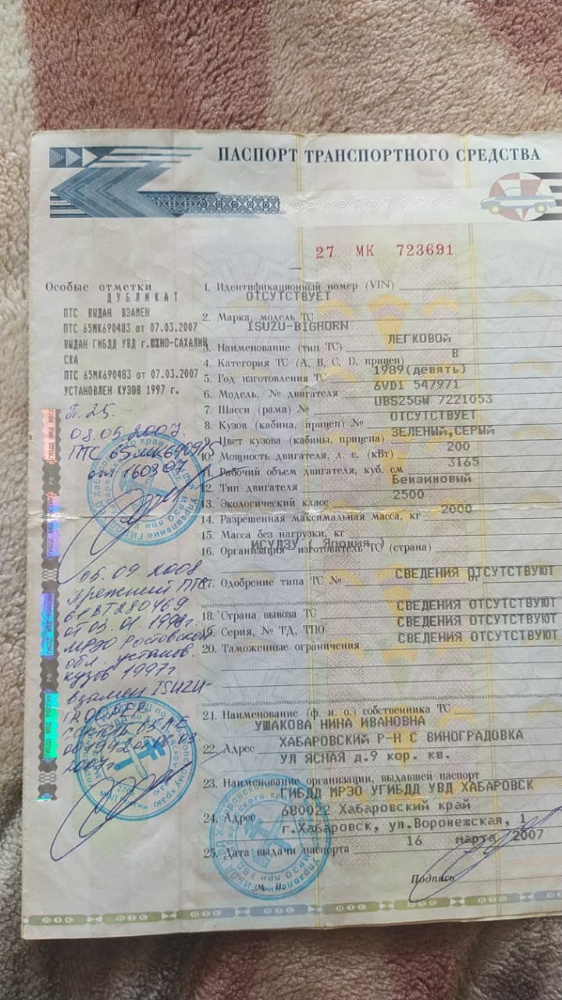 ПАСПОРТ ТРАНСПОРТНОГО СРЕДСТВА
27 МК 723691
Особые отметки
ДУБЛИКАТ
ПТС ВЫДАН ВЗАМЕН
ПТС 65МК690483 от 07.03.2007
ВЫДАН ГИБДД УВД г.ЮЖНО-САХАЛИН
СКА
ПТС 65МК690483 от 07.03.2007
УСТАНОВЛЕН КУЗОВ 1997 г.
П. 25.
08.05.2007.
05.09.2008
Прежний ПТС
от 03.01
МРЗО Ростовской
обл.
кузов 1997г
взамен ISUZU-
2007г
1. Идентификационный номер (VIN)
ОТСУТСТВУЕТ
2. Марка, модель ТС
ISUZU-BIGHORN
3. Наименование (тип ТС)
ЛЕГКОВОЙ
4. Категория ТС (А, В, С, D, прицеп)
В
5. Год изготовления ТС
1989(девять)
6. Модель, № двигателя
6VD1 547971
7. Шасси (рама) №
UBS25GW 7221053
8. Кузов (кабина, прицеп) №
ОТСУТСТВУЕТ
9. Цвет кузова (кабины, прицепа)
ЗЕЛЕНЫЙ,СЕРЫЙ
10. Мощность двигателя, л. с. (кВт)
200
11. Рабочий объем двигателя, куб. см
3165
12. Тип двигателя
Бензиновый
13. Экологический класс
2500
14. Разрешенная максимальная масса, кг
2000
15. Масса без нагрузки, кг
16. Организация - изготовитель ТС (страна)
ИСУДЗУ ( Япония )
17. Одобрение типа ТС №
СВЕДЕНИЯ ОТСУТСТВУЮТ
18. Страна вывоза ТС
СВЕДЕНИЯ ОТСУТСТВУЮТ
19. Серия, № ТД, ТПО
СВЕДЕНИЯ ОТСУТСТВУЮТ
20. Таможенные ограничения
СВЕДЕНИЯ ОТСУТСТВУЮТ
21. Наименование (ф. и. о.) собственника ТС
УШАКОВА НИНА ИВАНОВНА
22. Адрес
ХАБАРОВСКИЙ Р-Н С ВИНОГРАДОВКА
УЛ ЯСНАЯ д.9 кор. кв.
23. Наименование организации, выдавшей паспорт
ГИБДД МРЭО УГИБДД УВД ХАБАРОВСК
24. Адрес
680022 Хабаровский край
г.Хабаровск, ул.Воронежская, 1
25. Дата выдачи паспорта
16 марта 2007
М. П.
Подпись